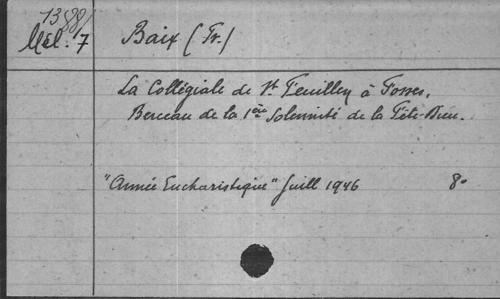 13588/
Mél. 7
Baix (Fr.)
La Collégiale de St Feuillen à Fosses.
Berceau de la 1ère Solennité de la Fête-Dieu.
"Année Eucharistique" Juill 1946
8°